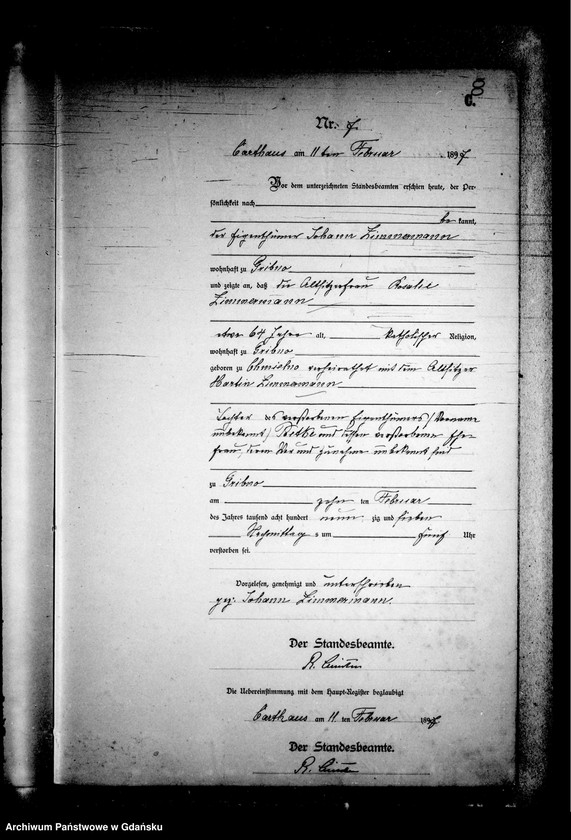 C.
8
Nr. 7.
Carthaus am 11 ten Februar 1897
Vor dem unterzeichneten Standesbeamten erschien heute, der Per-
sönlichkeit nach
be kannt,
der Eigenthümer Johann Zimmermann
wohnhaft zu Gribno
und zeigte an, daß die Altsitzerfrau Rosalie
Zimmermann
etwa 64 Jahre alt, katholischer Religion,
wohnhaft zu Gribno
geboren zu Chmielno verheirathet mit dem Altsitzer
Martin Zimmermann
Tochter des verstorbenen Eigenthümers (Vorname
unbekannt) und dessen verstorbene Ehe-
frau, deren Vor und Zuname unbekannt sind
zu Gribno
am zehn ten Februar
des Jahres tausend acht hundert neun zig und sieben
Nachmittag s um fünf Uhr
verstorben sei.
Vorgelesen, genehmigt und unterschrieben
gez. Johann Zimmermann.
Der Standesbeamte.
R.
Die Uebereinstimmung mit dem Haupt-Register beglaubigt
Carthaus am 11 ten Februar 1897
Der Standesbeamte.
R.
Archiwum Państwowe w Gdańsku